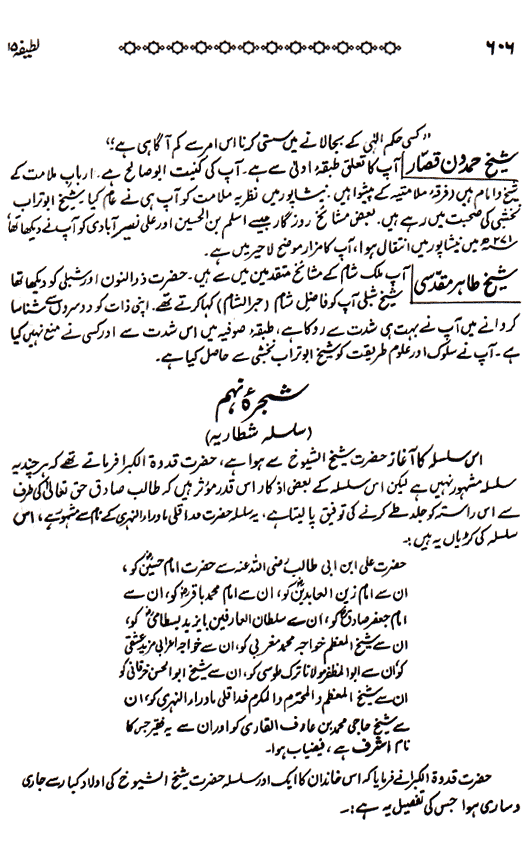 ۶۰۶ لطیفہ ۱۵
”کسی حکم الٰہی کے بجا لانے میں سستی کرنا اس امر سے کم آگاہی ہے“
شیخ حمدون قصار آپ کا تعلق طبقۂ اولیٰ سے ہے۔ آپ کی کنیت ابو صالح ہے۔ ارباب ملامت کے
شیخ و امام ہیں (فرقہ ملامتیہ کے پیشوا ہیں) نیشاپور میں نظریہ ملامت کو آپ ہی نے عام کیا شیخ ابو تراب
نخشبی کی صحبت میں رہے ہیں۔ بعض مشائخ روزگار جیسے اسلم بن الحسین اور علی نصیر آبادی کو آپ نے دیکھا تھا
۲۷۱ھ میں نیشاپور میں انتقال ہوا، آپ کا مزار موضع لاحیر میں ہے۔
شیخ طاہر مقدسی آپ ملک شام کے مشائخ متقدمین میں سے ہیں۔ حضرت ذوالنون اور شبلی کو دیکھا تھا
شیخ شبلی آپ کو فاضل شام (حبرالشام) کہا کرتے تھے۔ اپنی ذات کو دوسروں سے شناسا
کروانے میں آپ نے بہت ہی شدت سے روکا ہے، طبقۂ صوفیہ میں اس شدت سے اور کسی نے منع نہیں کیا
ہے۔ آپ نے سلوک اور علوم طریقت کو شیخ ابو تراب نخشبی سے حاصل کیا ہے۔
شجرۂ نہم
(سلسلہ شطاریہ)
اس سلسلہ کا آغاز حضرت شیخ الشیوخ سے ہوا ہے، حضرت قدوۃ الکبرا فرماتے تھے کہ ہر چند یہ
سلسلہ مشہور نہیں ہے لیکن اس سلسلہ کے بعض اذکار اس قدر مؤثر ہیں کہ طالب صادق حق تعالیٰ کی طرف
سے اس راستہ کو جلد طے کرنے کی توفیق پا لیتا ہے، یہ سلسلہ حضرت خدا قلی ماوراء النہری کے نام سے مشہور ہے، اس
سلسلہ کی کڑیاں یہ ہیں :۔
حضرت علی ابن ابی طالب رضی اللہ عنہ سے حضرت امام حسینؓ کو،
ان سے امام زین العابدینؓ کو، ان سے امام محمد باقرؓ کو، ان سے
امام جعفر صادقؓ کو، ان سے سلطان العارفین بایزید بسطامیؒ کو،
ان سے شیخ المعظم خواجہ محمد مغربی کو، ان سے خواجہ اعرابی مزید عشقی
کو ان سے ابو المظفر مولانا ترک طوسی کو، ان سے شیخ ابوالحسن خرقانی کو
ان سے شیخ المعظم والمحترم والمکرم خدا قلی ماوراء النہری کو، ان
سے شیخ حاجی محمد بن عارف القاری کو اور ان سے یہ فقیر جس کا
نام اشرف ہے، فیضیاب ہوا۔
حضرت قدوۃ الکبرا نے فرمایا کہ اس خاندان کا ایک اور سلسلہ حضرت شیخ الشیوخ کی اولاد کبار سے جاری
و ساری ہوا جس کی تفصیل یہ ہے :۔